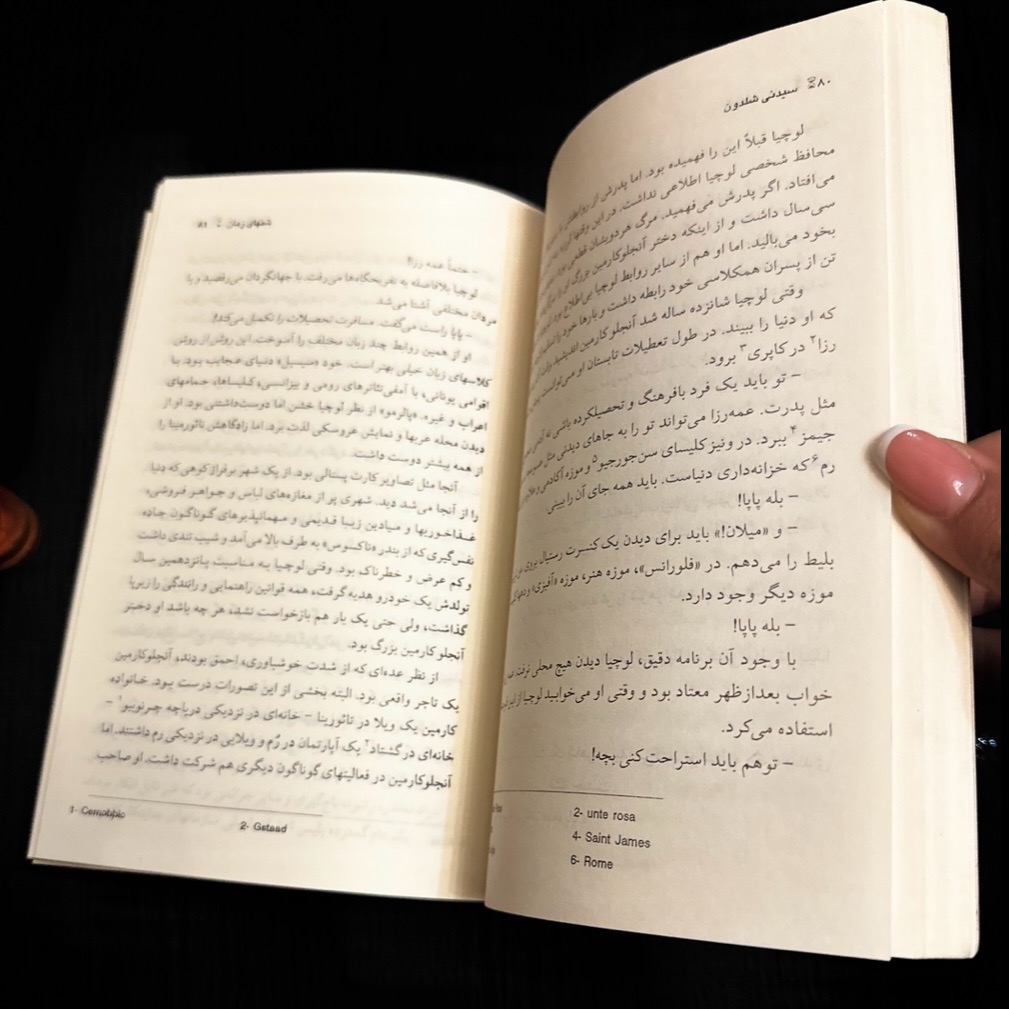 ۸۰ سیدنی شلدون
لوچیا قبلاً این را فهمیده بود. اما پدرش از روابطش با
محافظ شخصی لوچیا اطلاعی نداشت. در این وقتها
می‌افتاد. اگر پدرش می‌فهمید. مرگ هردویشان قطعی بود.
سی سال داشت و از اینکه دختر آنجلوکارمین بزرگ
بخود می‌بالید. اما او هم از سایر روابط لوچیا بی‌اطلاع بود.
تن از پسران همکلاسی خود رابطه داشت و بارها خود را
وقتی لوچیا شانزده ساله شد آنجلوکارمین اندیشید وقت آن
که او دنیا را ببیند. در طول تعطیلات تابستان او می‌توانست
رزا۲ در کاپری۳ برود.
- تو باید یک فرد بافرهنگ و تحصیلکرده باشی نه آدمی
مثل پدرت. عمه‌رزا می‌تواند تو را به جاهای دیدنی مثل
جیمز۴ ببرد. در ونیز کلیسای سن‌جورجیو۵ و موزه آکادمی و
رم۶ که خزانه‌داری دنیاست. باید همه جای آن را ببینی
- بله پاپا!
- و «میلان!» باید برای دیدن یک کنسرت رستیال بروی من
بلیط را می‌دهم. در «فلورانس»، موزه هنر، موزه «آفیزی» و دهها
موزه دیگر وجود دارد.
- بله پاپا!
با وجود آن برنامه دقیق، لوچیا دیدن هیچ محلی نرفت.
خواب بعدازظهر معتاد بود و وقتی او می‌خوابید لوچیا از این
استفاده می‌کرد.
- تو هم باید استراحت کنی بچه!
2- unte rosa
4- Saint James
6- Rome
شنهای زمان ۸۱
- حتماً عمه رزا!
لوچیا بلافاصله به تفریحگاه‌ها می‌رفت، با جهانگردان می‌رقصید و با
مردان مختلفی آشنا می‌شد.
- پاپا راست می‌گفت. مسافرت تحصیلات را تکمیل می‌کند!
او از همین روابط چند زبان مختلف را آموخت. این روش از روش
کلاسهای زبان خیلی بهتر است. خود «سیسیل» دنیای عجایب بود. با
اقوامی یونانی، با آمفی تئاترهای رومی و بیزانسی، کلیساها، حمامهای
اعراب و غیره. «پالرمو» از نظر لوچیا خشن اما دوست‌داشتنی بود. او از
دیدن محله عربها و نمایش عروسکی لذت برد. اما زادگاهش تائورمینا را
از همه بیشتر دوست داشت.
آنجا مثل تصاویر کارت پستالی بود. از یک شهر برفراز کوهی که دنیا
را از آنجا می‌شد دید. شهری پر از مغازه‌های لباس و جواهر فروشی،
غذاخوریها و میادین زیبا قدیمی و مهمانپذیرهای گوناگون جاده
نفس‌گیری که از بندر «ناکسوس» به طرف بالا می‌آمد و شیب تندی داشت
و کم عرض و خطرناک بود. وقتی لوچیا به مناسبت پانزدهمین سال
تولدش یک خودرو هدیه گرفت، همه قوانین راهنمایی و رانندگی را زیرپا
گذاشت، ولی حتی یک بار هم بازخواست نشد، هر چه باشد او دختر
آنجلو کارمین بزرگ بود.
از نظر عده‌ای که از شدت خوشباوری، احمق بودند، آنجلوکارمین
یک تاجر واقعی بود. البته بخشی از این تصورات درست بود. خانواده
کارمین یک ویلا در تائورینا - خانه‌ای در نزدیکی دریاچه چرنوبیو۱ -
خانه‌ای در گشتاد۲ یک آپارتمان در رُم و ویلایی در نزدیکی رم داشتند. اما
آنجلوکارمین در فعالیتهای گوناگون دیگری هم شرکت داشت. او صاحب
1- Cernobbio
2- Gstaad